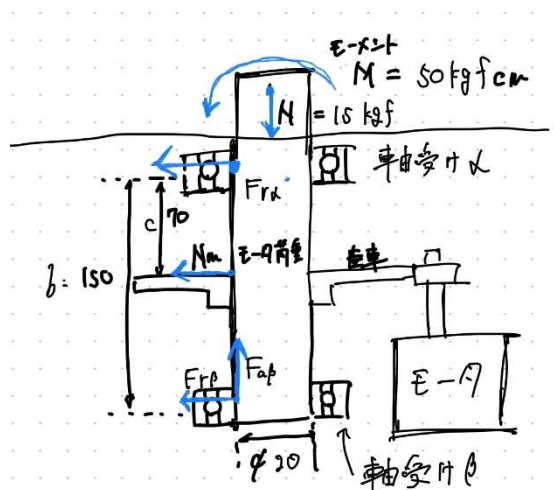 モーメント
M = 50 kgf cm
N = 15 kgf
軸受け α
Frα
c 70
Nm モータ荷重
歯車
b = 150
Frβ
Faβ
モータ
φ20
軸受け β